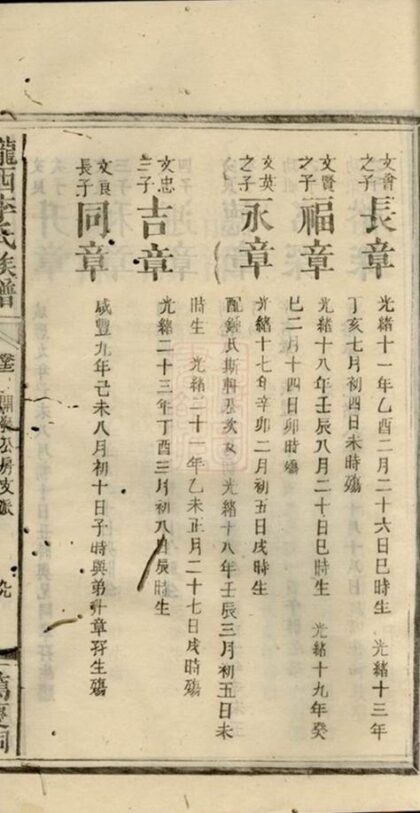 文會之子
長章
光緒十一年乙酉二月二十六日巳時生 光緒十三年
丁亥七月初四日未時殤
文賢之子
福章
光緒十八年壬辰八月二十日巳時生 光緒十九年癸
巳二月十四日卯時殤
文英之子
永章
光緒十七年辛卯二月初五日戌時生
配鍾氏斯軒公次女 光緒十八年壬辰三月初五日未
時生 光緒二十一年乙未正月二十七日戌時殤
文忠三子
吉章
光緒二十三年丁酉三月初八日辰時生
文良長子
同章
咸豐九年己未八月初十日子時與弟升章孖生殤
隴西李氏族譜
公房支派
九